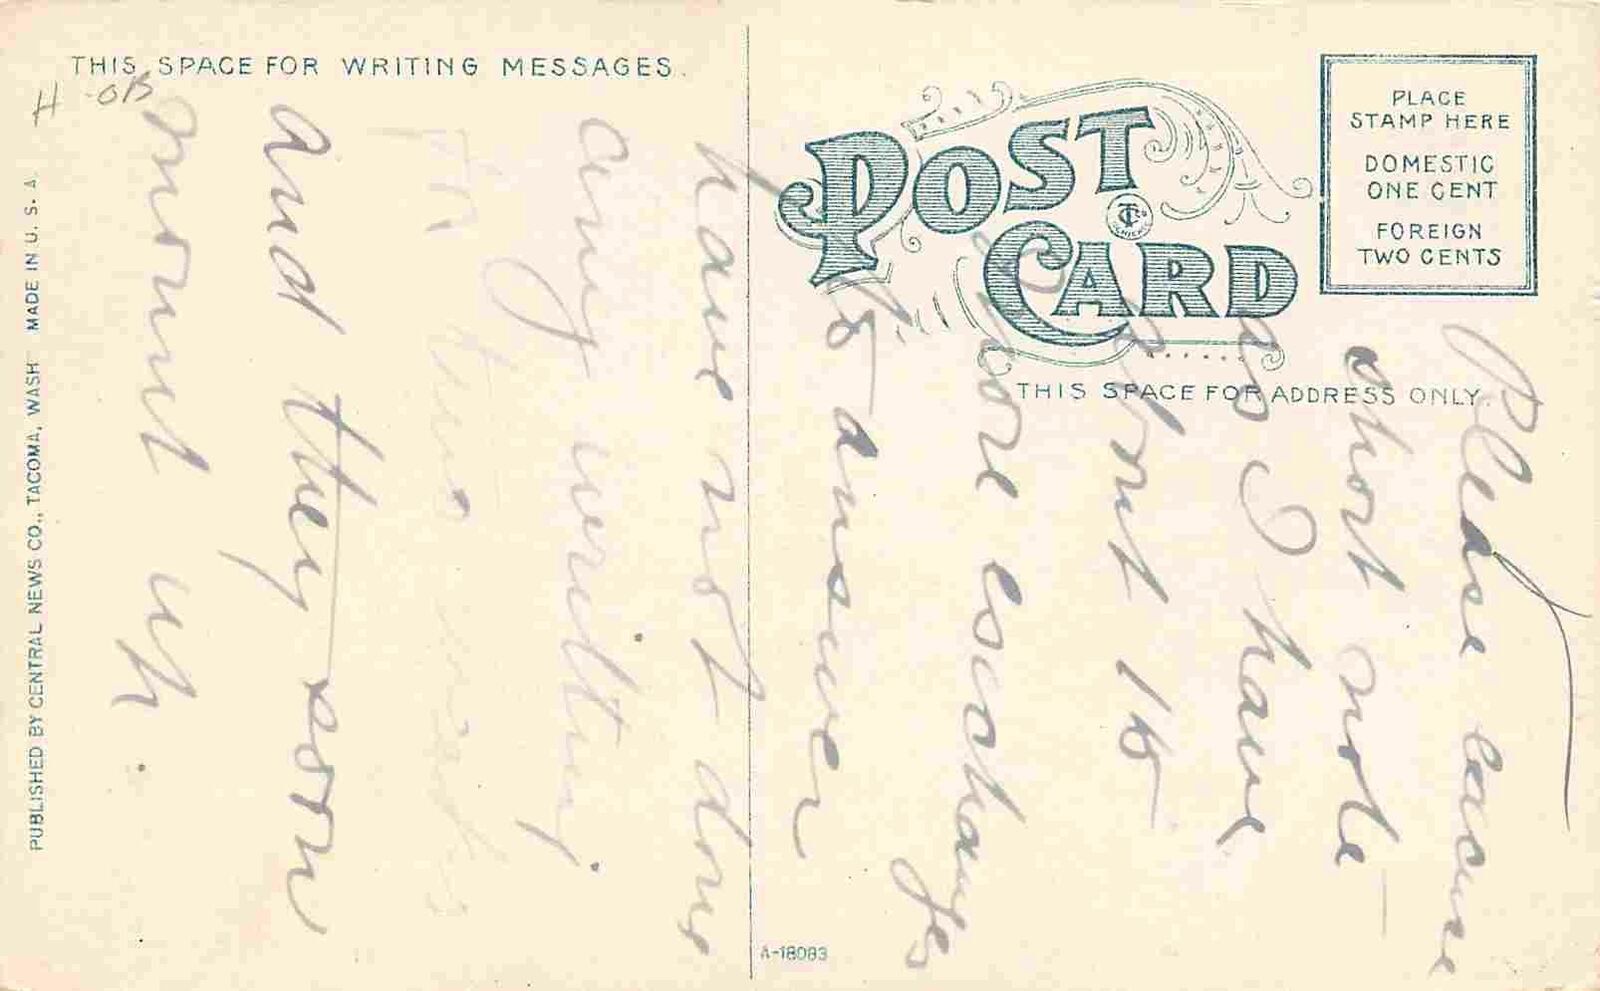 THIS SPACE FOR WRITING MESSAGES.
H-OB
POST
CARD
PLACE
STAMP HERE
DOMESTIC
ONE CENT
FOREIGN
TWO CENTS
THIS SPACE FOR ADDRESS ONLY.
Please excuse
short note -
as I have
about 15
more exchanges
to answer
have not done
any writing
in two weeks
and they soon
mount up.
PUBLISHED BY CENTRAL NEWS CO., TACOMA, WASH MADE IN U. S. A.
A-18083